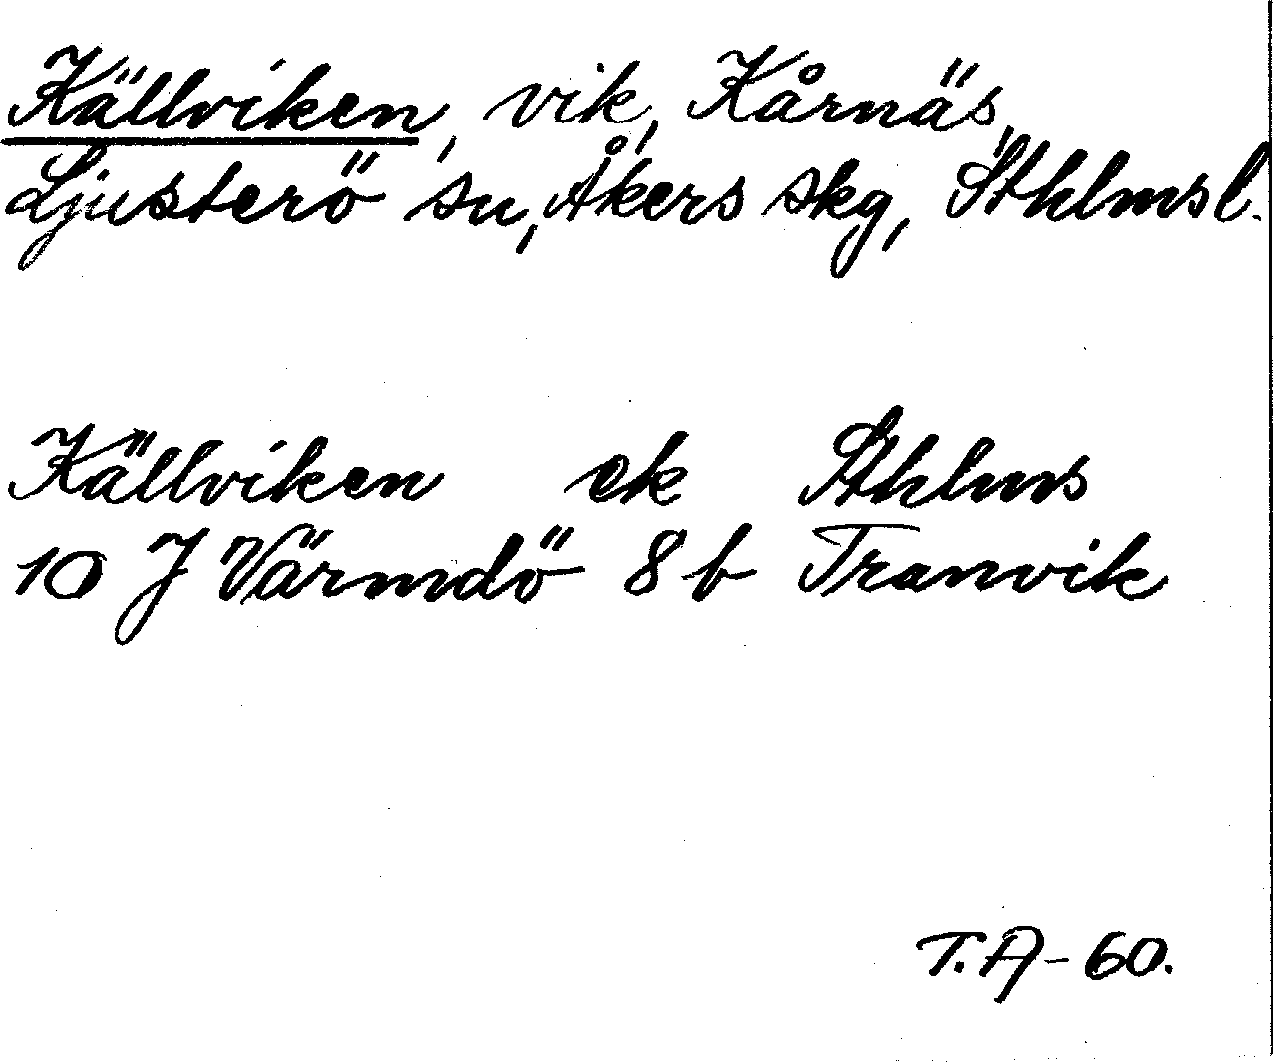 Källviken, vik, Kårnäs,
Ljusterö sn, Åkers skg, Sthlms l.
Källviken ek Sthlms
10 J Värmdö 8 b Tranvik
T.A-60.